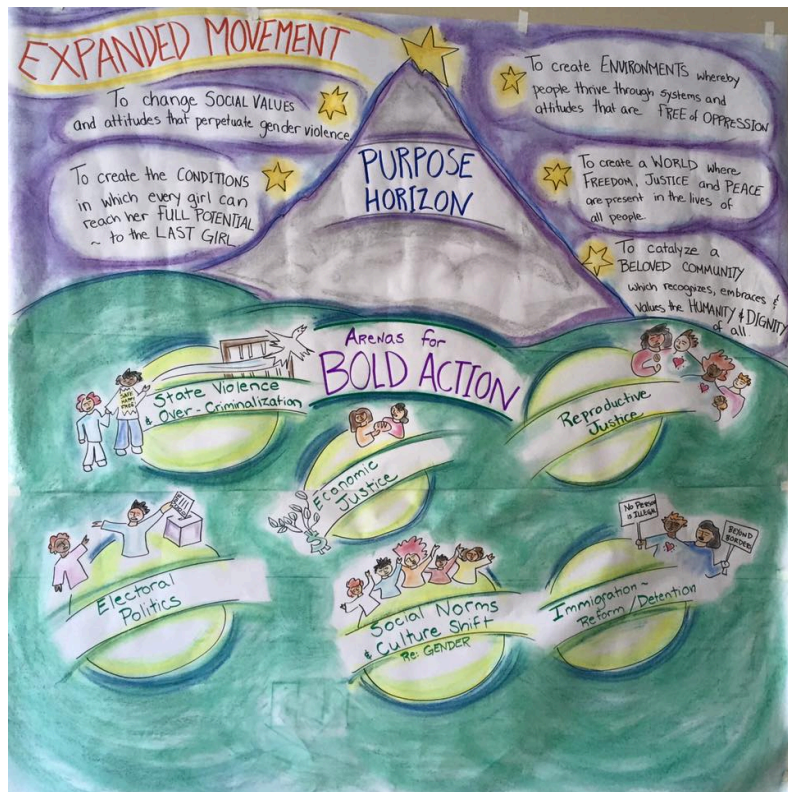 EXPANDED MOVEMENT
To change SOCIAL VALUES
and attitudes that perpetuate gender violence
To create the CONDITIONS
in which every girl can
reach her FULL POTENTIAL
~ to the LAST GIRL.
PURPOSE
HORIZON
To create ENVIRONMENTS whereby
people thrive through systems and
attitudes that are FREE of OPPRESSION
To create a WORLD where
FREEDOM, JUSTICE and PEACE
are present in the lives of
all people
To catalyze a
BELOVED COMMUNITY
which recognizes, embraces &
values the HUMANITY & DIGNITY
of all.
ARENAS for
BOLD ACTION
SAFE
HAPPY
FREE
State Violence
& Over-Criminalization
Economic
Justice
Reproductive
Justice
Electoral
Politics
Social Norms
& Culture Shift
Re: GENDER
NO PERSON
is ILLEGAL
BEYOND
BORDERS
Immigration ~
Reform / Detention